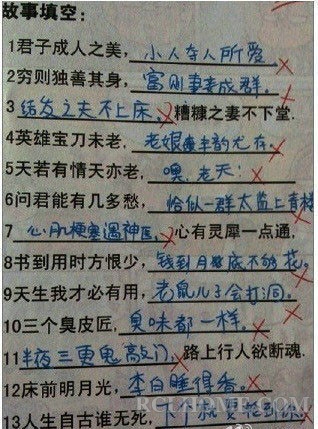 故事填空:
1君子成人之美,小人夺人所爱。
2穷则独善其身,富则妻妾成群。
3结发之夫不上床,糟糠之妻不下堂.
4英雄宝刀未老,老娘丰韵尤存。
5天若有情天亦老,噢,老天!
6问君能有几多愁,恰似一群太监上青楼
7心肌梗塞遇神医,心有灵犀一点通,
8书到用时方恨少,钱到月底不够花。
9天生我才必有用,老鼠儿子会打洞。
10三个臭皮匠,臭味都一样。
11半夜三更鬼敲门,路上行人欲断魂.
12床前明月光,李白睡得香。
13人生自古谁无死,下个就要轮到你!